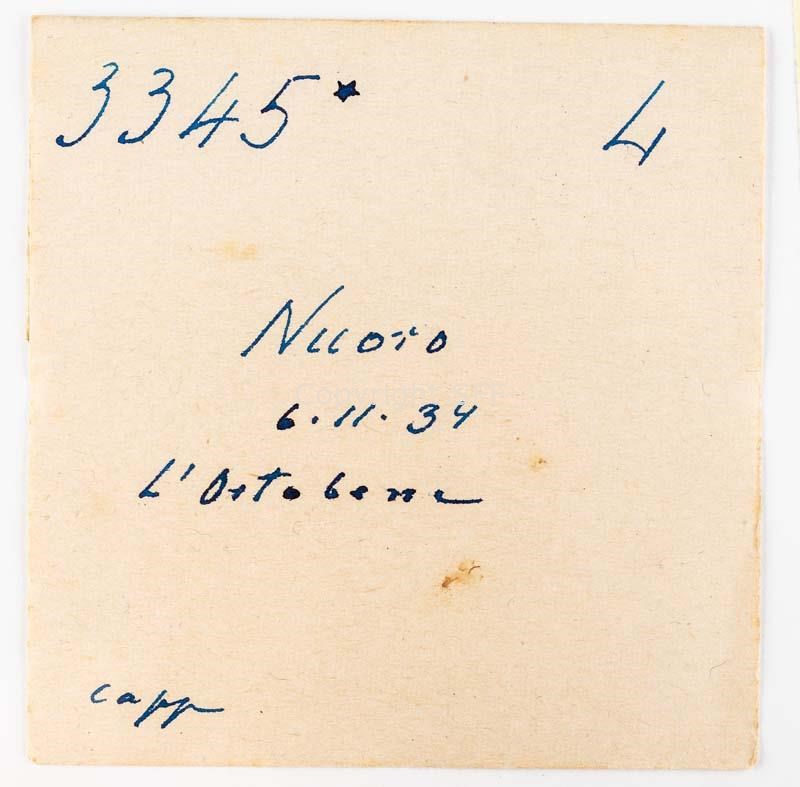 3345* 4
Nuoro
6.11.34
L'Ortobene
capp